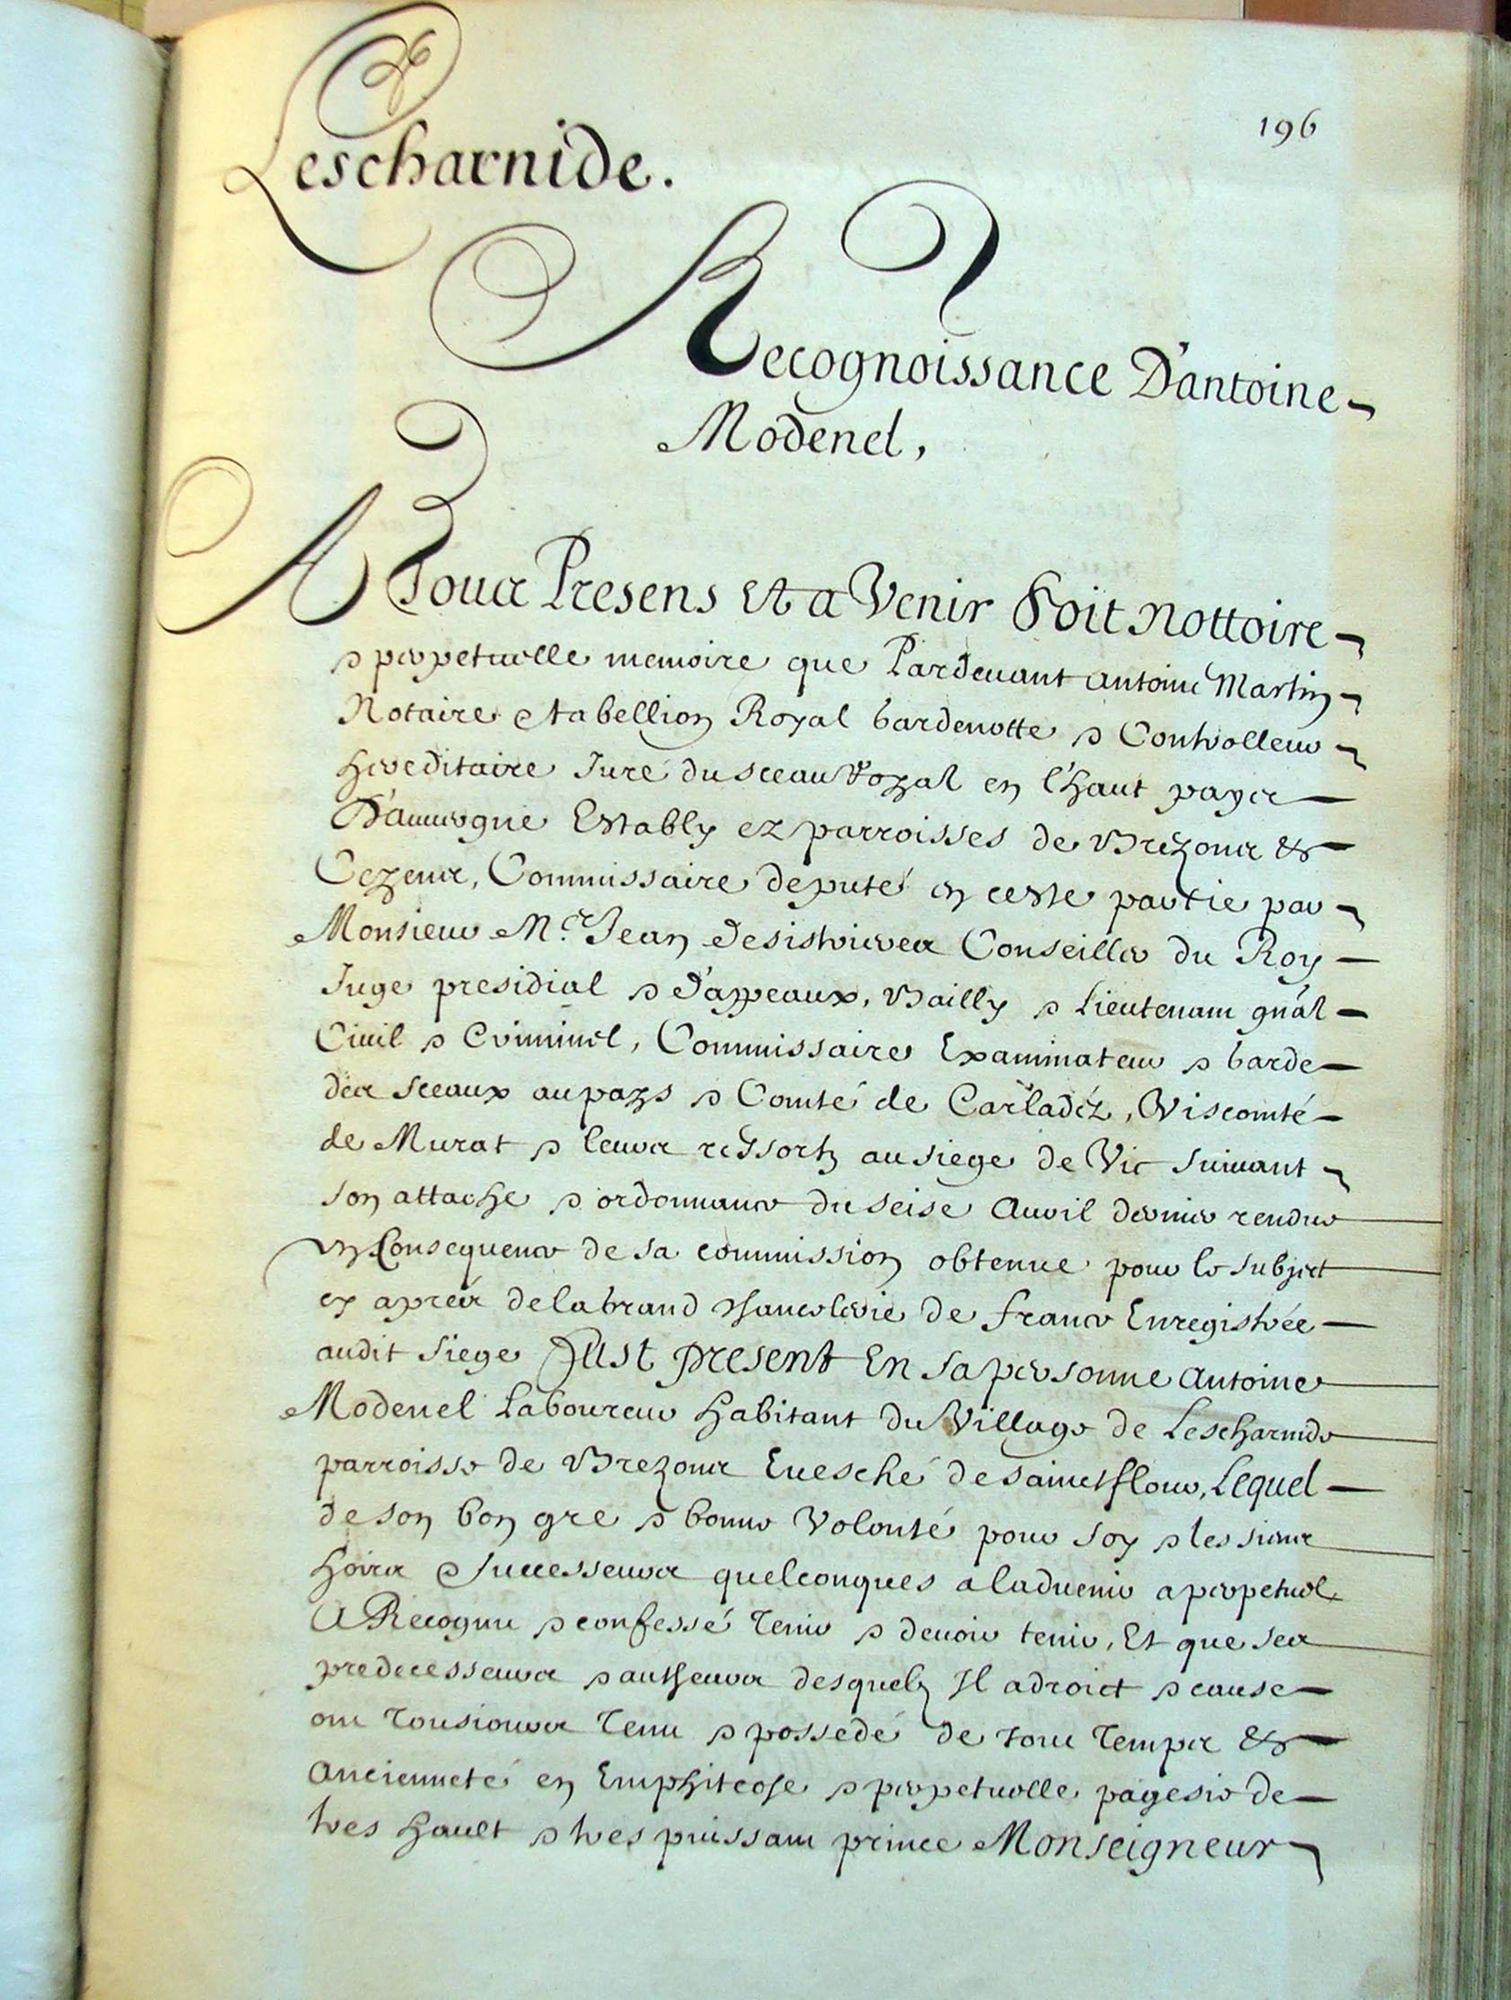 196
Lescharnide.
Recognoissance D'antoine
Modenel,
A Tous Presens Et a Venir Soit Nottoire
& perpetuelle memoire que Pardevant Antoine Martin
Notaire & tabellion Royal Gardenotte & Controlleur
hereditaire Juré du sceau Royal en l'haut payis
D'auvergne Estably ez parroisses de Brezons &
Cezens, Commissaire deputé en ceste partie par
Monsieur Me. Jean Desistrieres Conseiller du Roy
Juge presidial & d'appeaux, Bailly & Lieutenant gnãl
Civil & Criminel, Commissaire Examinateur & Garde
des sceaux au pays & Comté de Carladéz, Viscomté
de Murat & leurs ressortz au siege de Vic suivant
son attache & ordonnance du seise Avril dernier rendue
en Consequence de sa commission obtenue pour le subject
cy apres de la Grand Chancelerie de france Enregistrée
audit siege Fust present En sa personne Antoine
Modenel Laboureur habitant du Village de Lescharnide
parroisse de Brezons Evesché de sainct flour, Lequel
de son bon gre & bonne Volonté pour soy & les siens
hoirs & successeurs quelconques a ladvenir a perpetuel
A Recognu & confessé tenir & devoir tenir, Et que ses
predecesseurs & autheurs desquelz Il a droict & cause
ont tousiours tenu & possedé de tout temps &
Ancienneté en Emphiteose & perpetuelle pagesie de
tres hault & tres puissant prince Monseigneur